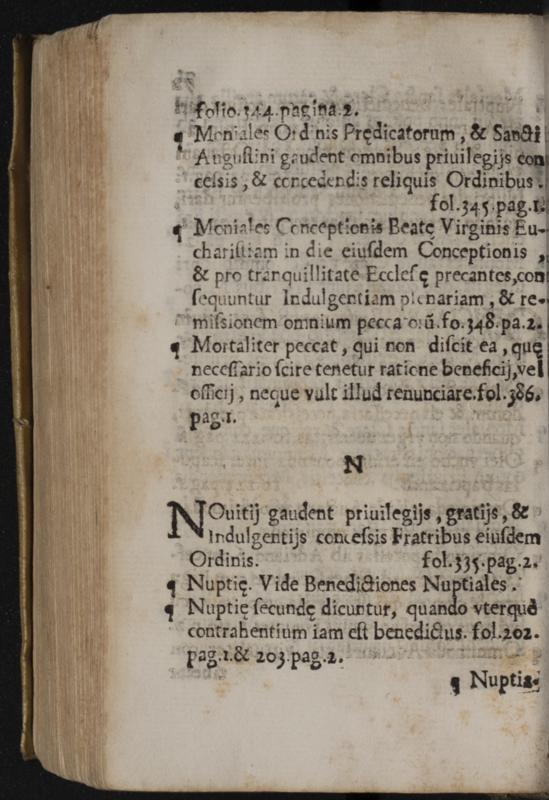 folio.344.pagina.2.
¶ Moniales Ordinis Prędicatorum, & Sancti
Auguſtini gaudent omnibus priuilegijs con
ceſsis, & concedendis reliquis Ordinibus.
fol.345.pag.1.
¶ Moniales Conceptionis Beatę Virginis Eu-
chariſtiam in die eiuſdem Conceptionis,
& pro tranquillitate Eccleſę precantes, con
ſequuntur Indulgentiam plenariam, & re-
miſsionem omnium peccatorũ.fo.348.pa.2.
¶ Mortaliter peccat, qui non diſcit ea, quę
neceſſario ſcire tenetur ratione beneficij, vel
officij, neque vult illud renunciare.fol.386.
pag.1.
N
NOuitij gaudent priuilegijs, gratijs, &
Indulgentijs conceſsis Fratribus eiuſdem
Ordinis. fol.335.pag.2.
¶ Nuptię. Vide Benedictiones Nuptiales.
¶ Nuptię ſecundę dicuntur, quando vterque
contrahentium iam eſt benedictus. fol.202.
pag.1.& 203.pag.2.
¶ Nuptia-